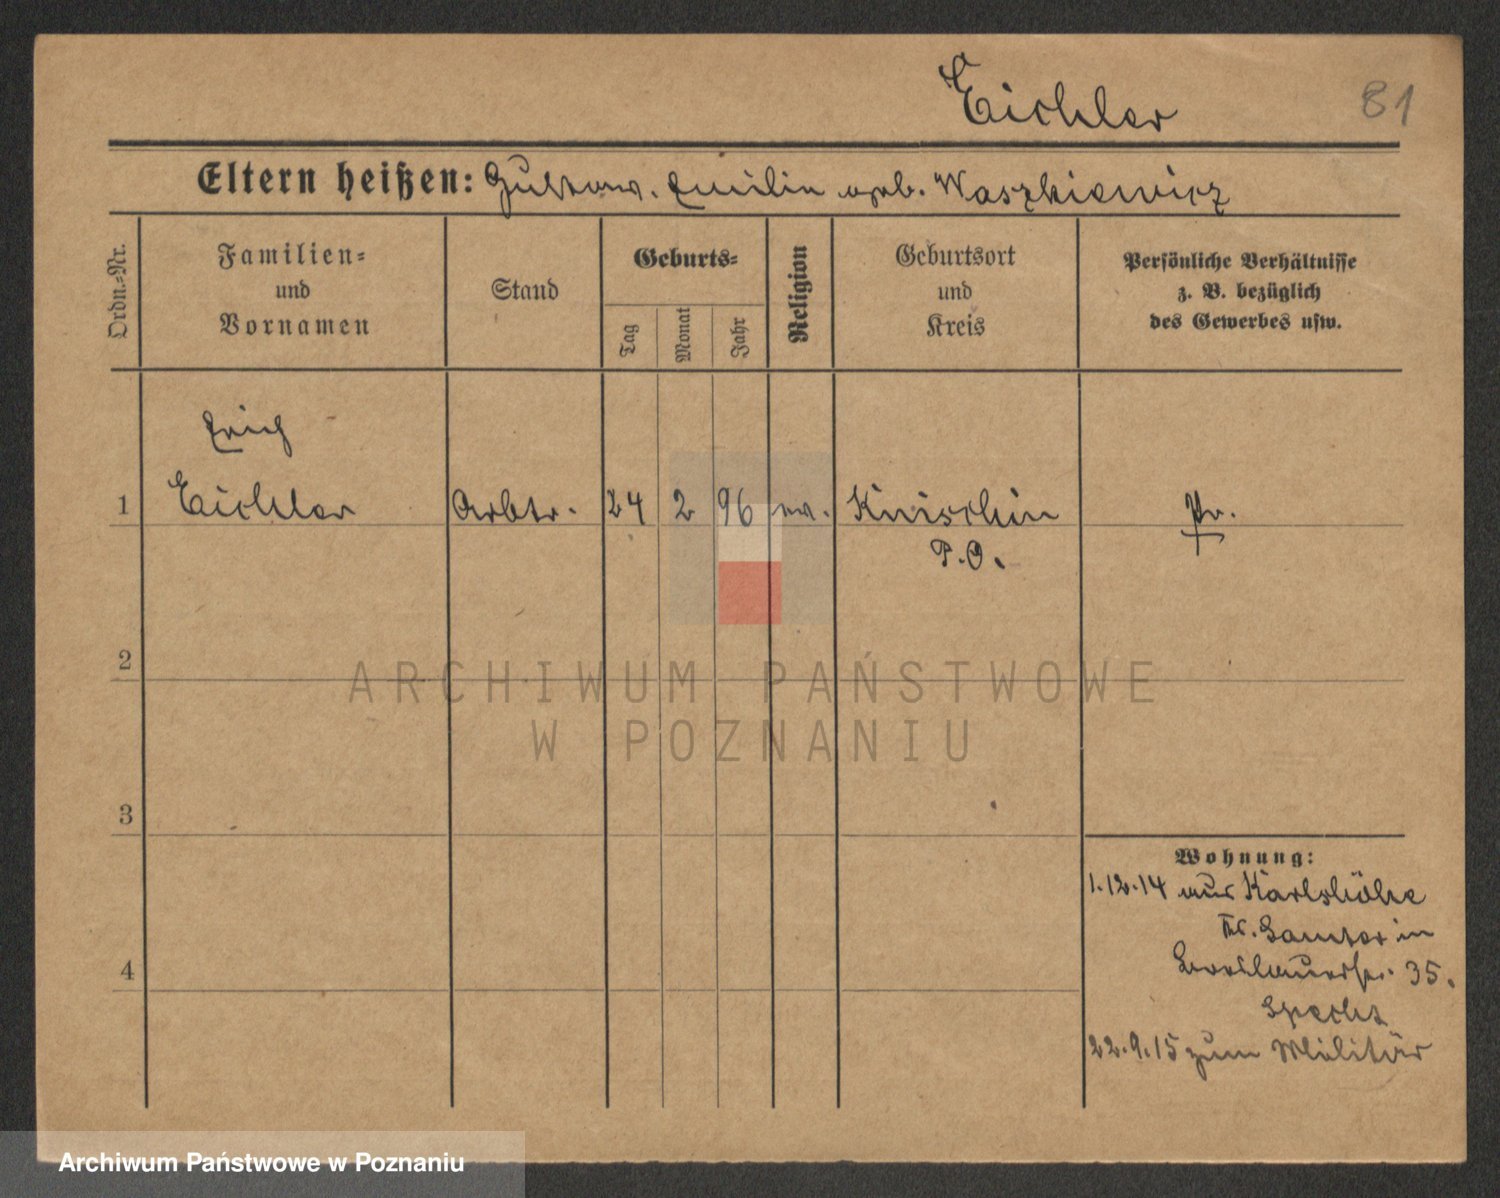 Eichler
81
Eltern heißen: Gustav. Emilie geb. Waszkiewicz
Ordn.-Nr.
Familien-
und
Vornamen
Stand
Geburts-
Tag
Monat
Jahr
Religion
Geburtsort
und
Kreis
Persönliche Verhältnisse
z. B. bezüglich
des Gewerbes usw.
Erich
1 Eichler Arbtr. 24 2 96 ev. Knischin Pr.
P.O.
2
3
4
Wohnung:
1.12.14 aus Karlshöhe
Kr. Samter in
35.
Specht
22.9.15 zum Militär
ARCHIWUM PAŃSTWOWE
W POZNANIU
Archiwum Państwowe w Poznaniu